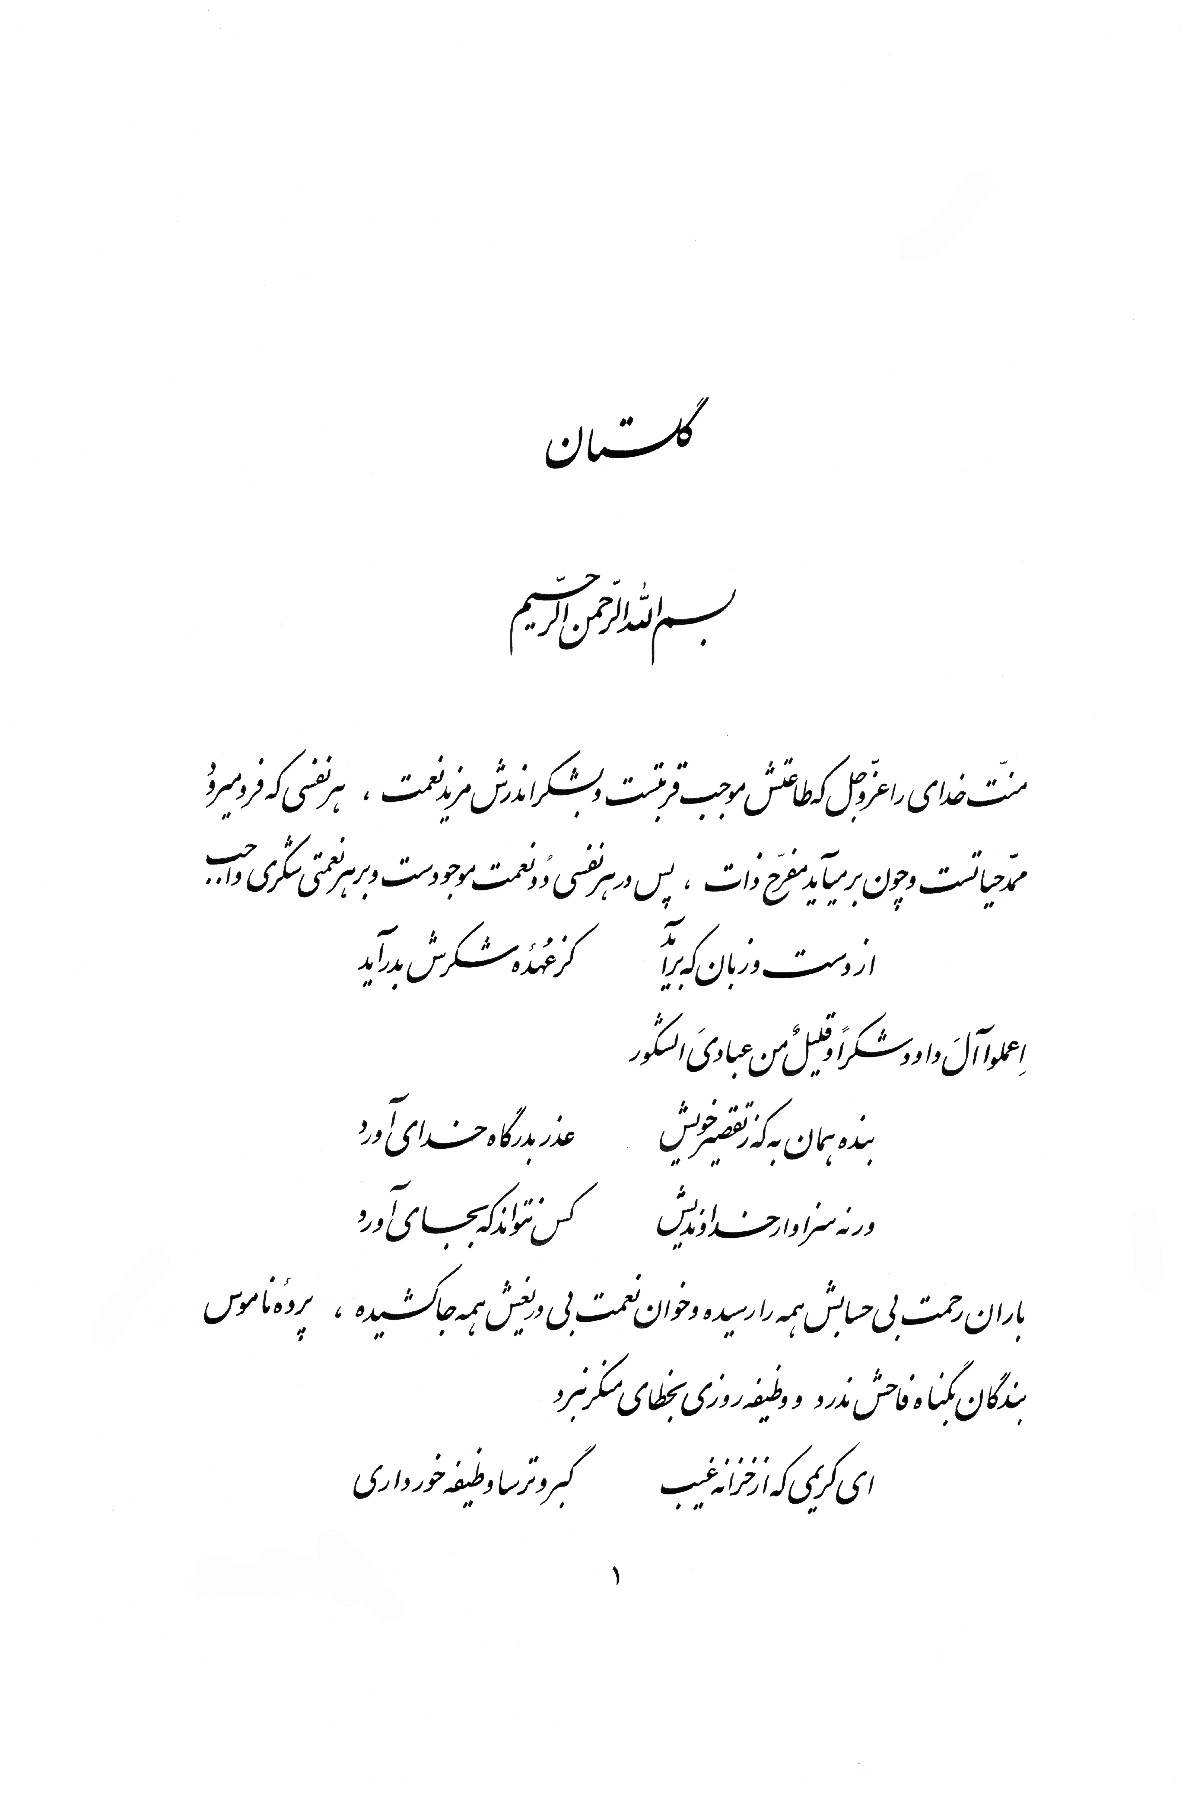 گلستان
بسم الله الرّحمن الرّحیم
منّت خدای را عزّ و جل که طاعتش موجب قربتست و بشکر اندرش مزید نعمت ، هر نفسی که فرو میرود
ممدّ حیاتست و چون بر میآید مفرّح ذات ، پس در هر نفسی دو نعمت موجودست و بر هر نعمتی شکری واجب
از دست و زبان که برآید کز عُهدهٔ شکرش بدر آید
اِعملوا آلَ داود شکراً و قلیلٌ من عبادیَ الشکور
بنده همان به که ز تقصیر خویش عذر بدرگاه خدای آورد
ور نه سزاوار خداوندیش کس نتواند که بجای آورد
باران رحمت بی حسابش همه را رسیده و خوان نعمت بی دریغش همه جا کشیده ، پردهٔ ناموس
بندگان بگناه فاحش ندرد و وظیفه روزی بخطای منکر نبرد
ای کریمی که از خزانه غیب گبر و ترسا وظیفه خور داری
۱